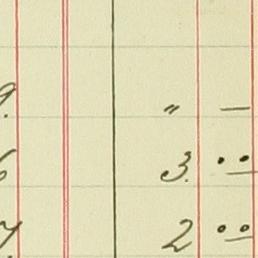 9. " —
6 3. ..
7 2 ..